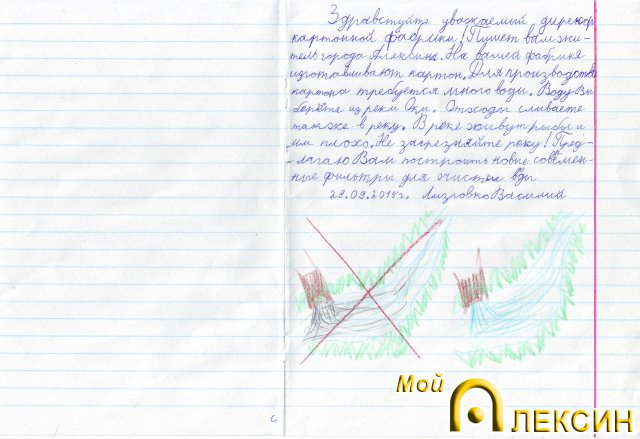 Здравствуйте уважаемый директор
картонной фабрики! Пишет вам жи-
тель города Алексина. На вашей фабрике
изготавливают картон. Для производства
картона требуется много воды. Воду Вы
берёте из реки Оки. Отходы сливаете
также в реку. В реке живут рыбы и
им плохо. Не загрезняйте реку! Пред-
-лагаю Вам построить новые совемен-
ные фильтры для очистки вды
29.09.2015г. Лизровко Василий
Мой
Алексин